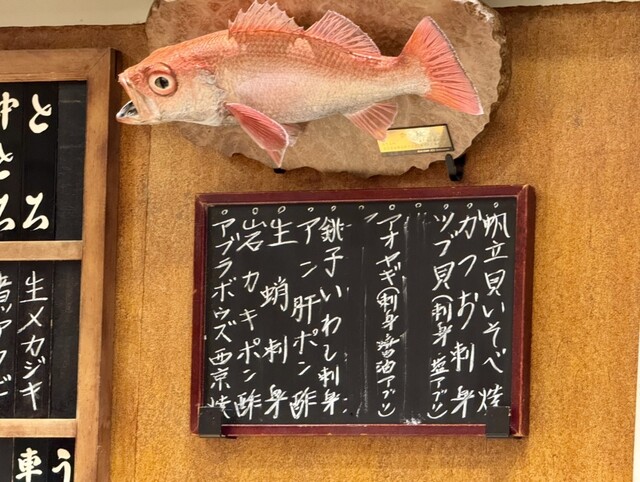 帆立貝いそべ焼
かつお刺身
ツブ貝(刺身・塩アブリ)
アオヤギ(刺身・醤油アブリ)
銚子いわし刺身
アン肝ポン酢
生蛸刺身
岩カキポン酢
アブラボウズ西京焼
と
中とろ
生メカジキ
う
車